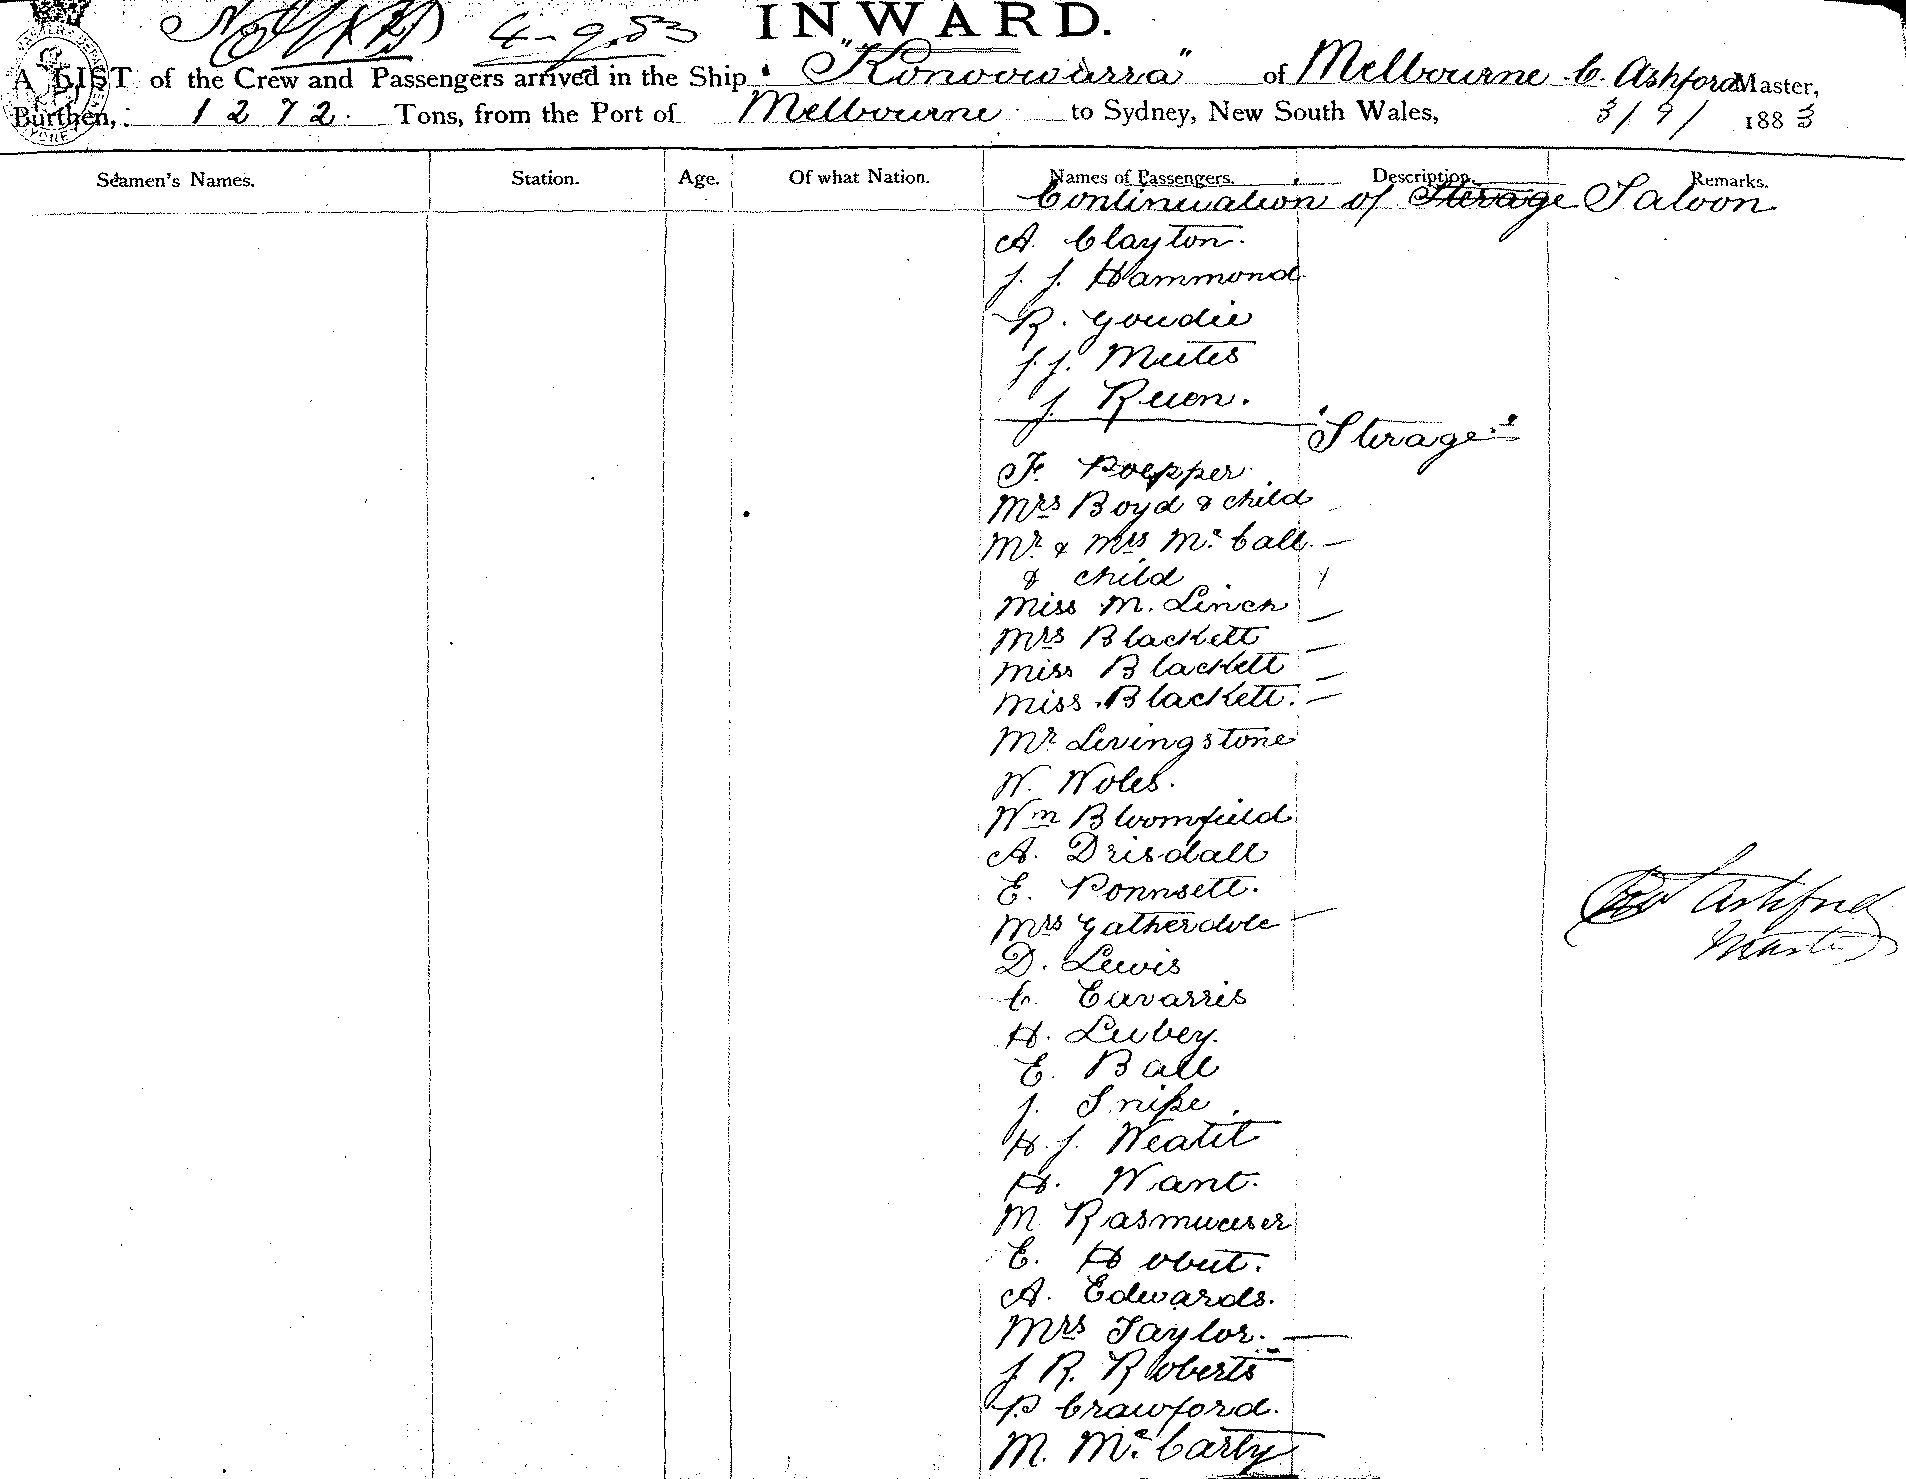 4-9.83
INWARD.
A LIST of the Crew and Passengers arrived in the Ship "Konoowarra" of Melbourne C. Ashford Master,
Burthen, 1272. Tons, from the Port of Melbourne to Sydney, New South Wales, 3/9/ 1883
Seamen's Names. Station. Age. Of what Nation. Names of Passengers. Description. Remarks.
Continuation of Sterage Saloon
A. Clayton.
J. J. Hammond
R. Goudie
J. J. Meites
J. Ruon.
"Sterage"
F. Poepper
Mrs Boyd & child
Mr & Mrs Mc Call
& child
Miss M. Linch
Mrs Blackett
Miss Blackett
Miss Blackett.
Mr Livingstone
W. Woles.
Wm Bloomfield
A. Drisdall
E. Ponnsett.
Mrs Gatherdole
D. Lewis
C. Cavarris
H. Lubey.
E. Ball
J. Snipe
H. J. Weatit
H. Want.
M Rasmuuser
E. Hobut.
A. Edwards.
Mrs Taylor.
J R. Roberts
P Crawford.
M. Mc Carty
Ashford
Master